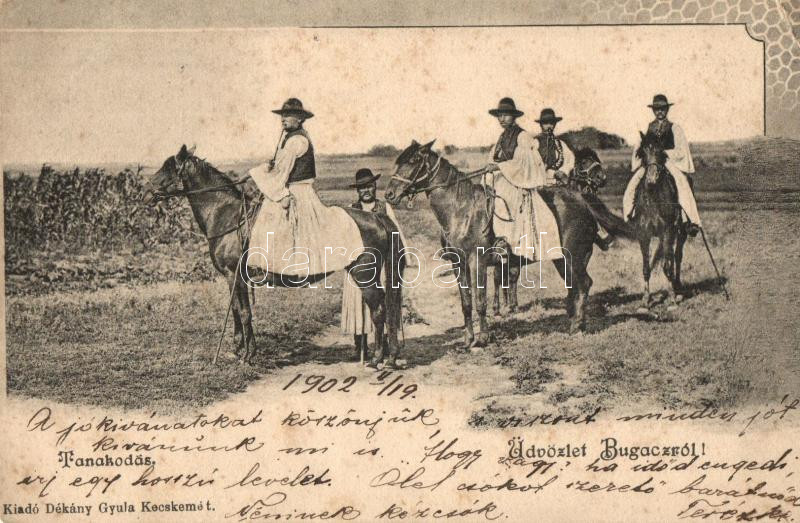 darabanth
1902 II/19.
A jókivánatokat köszönjük, s viszont minden jót
kivánunk mi is. Hogy vagy? ha időd engedi,
Üdvözlet Bugaczról!
Tanakodás.
irj egy hosszú levelet. Ölel csókol szerető barátnőd
Kiadó Dékány Gyula Kecskemét.
Néninek kézcsók. Terezka